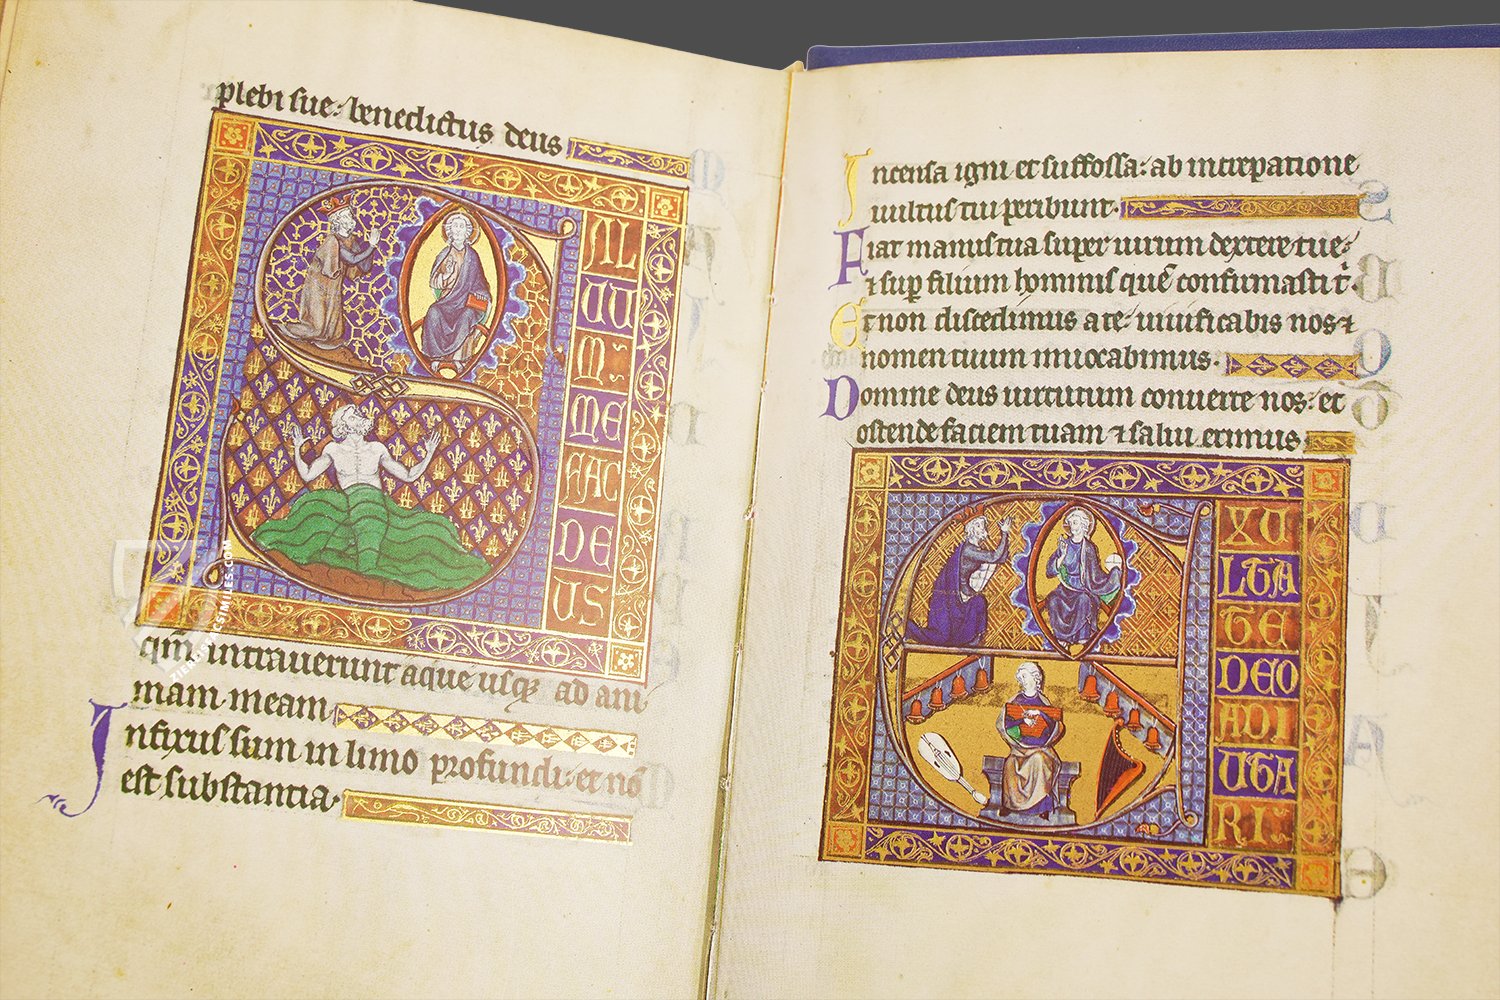 plebi sue: benedictus deus
SAL
UU
M
ME
FAC
DE
US
qm intrauerunt aque usq ad ani
mam meam
Infixus sum in limo profundi: et nō
est substantia
ZIEREIS FACSIMILES.COM
Incensa igni et suffossa: ab increpatione
uultus tui peribunt.
Fiat manus tua super uirum dextere tue:
⁊ sup filium hominis quē confirmasti t'.
Et non discedimus a te: uiuificabis nos ⁊
nomen tuum inuocabimus.
Domine deus uirtutum conuerte nos: et
ostende faciem tuam ⁊ salui erimus
EXU
LTA
TE
DEO
ADI
UTA
RI